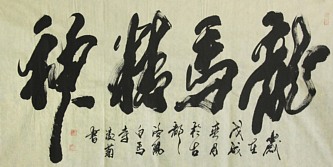 龍馬精神
歲在
戊戌
春月
於古
都
洛陽
白馬
寺
書